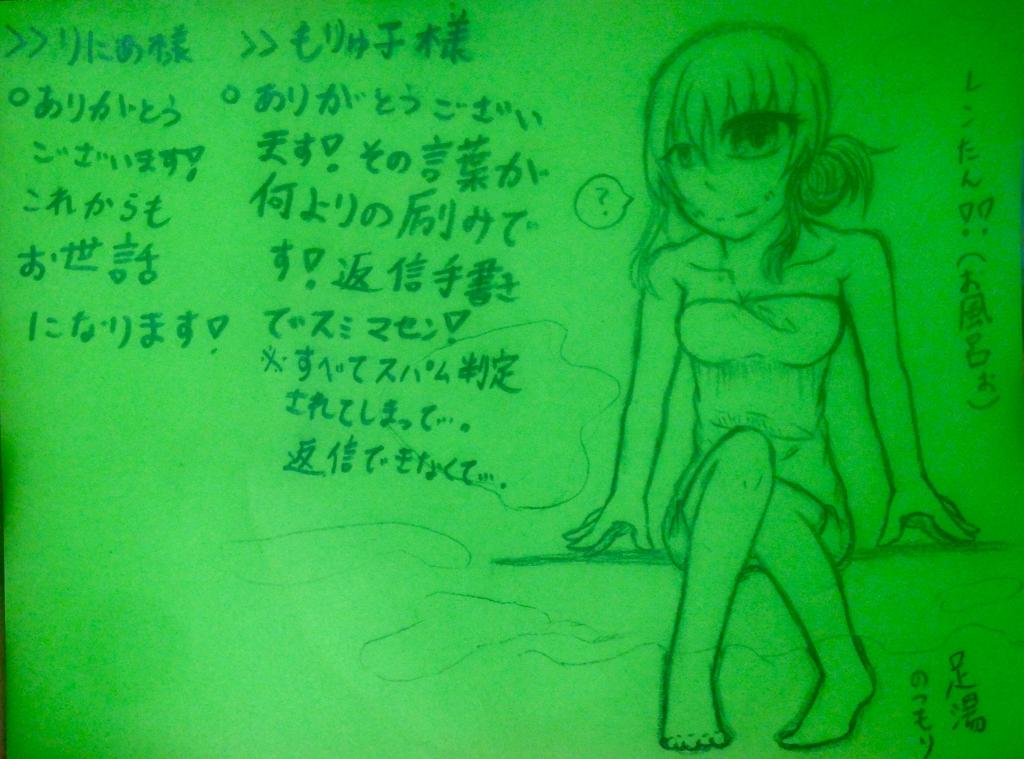 >>りにあ様
○ありがとう
ございます!
これからも
お世話
になります!
>>もりゅ子様
○ありがとうござい
ます!その言葉が
何よりの励みで
す!返信手書き
でスミマセン!
※すべてスパム判定
されてしまって…。
返信できなくて…。
?
レンたん!!(お風呂ぉ)
足湯
のつもり